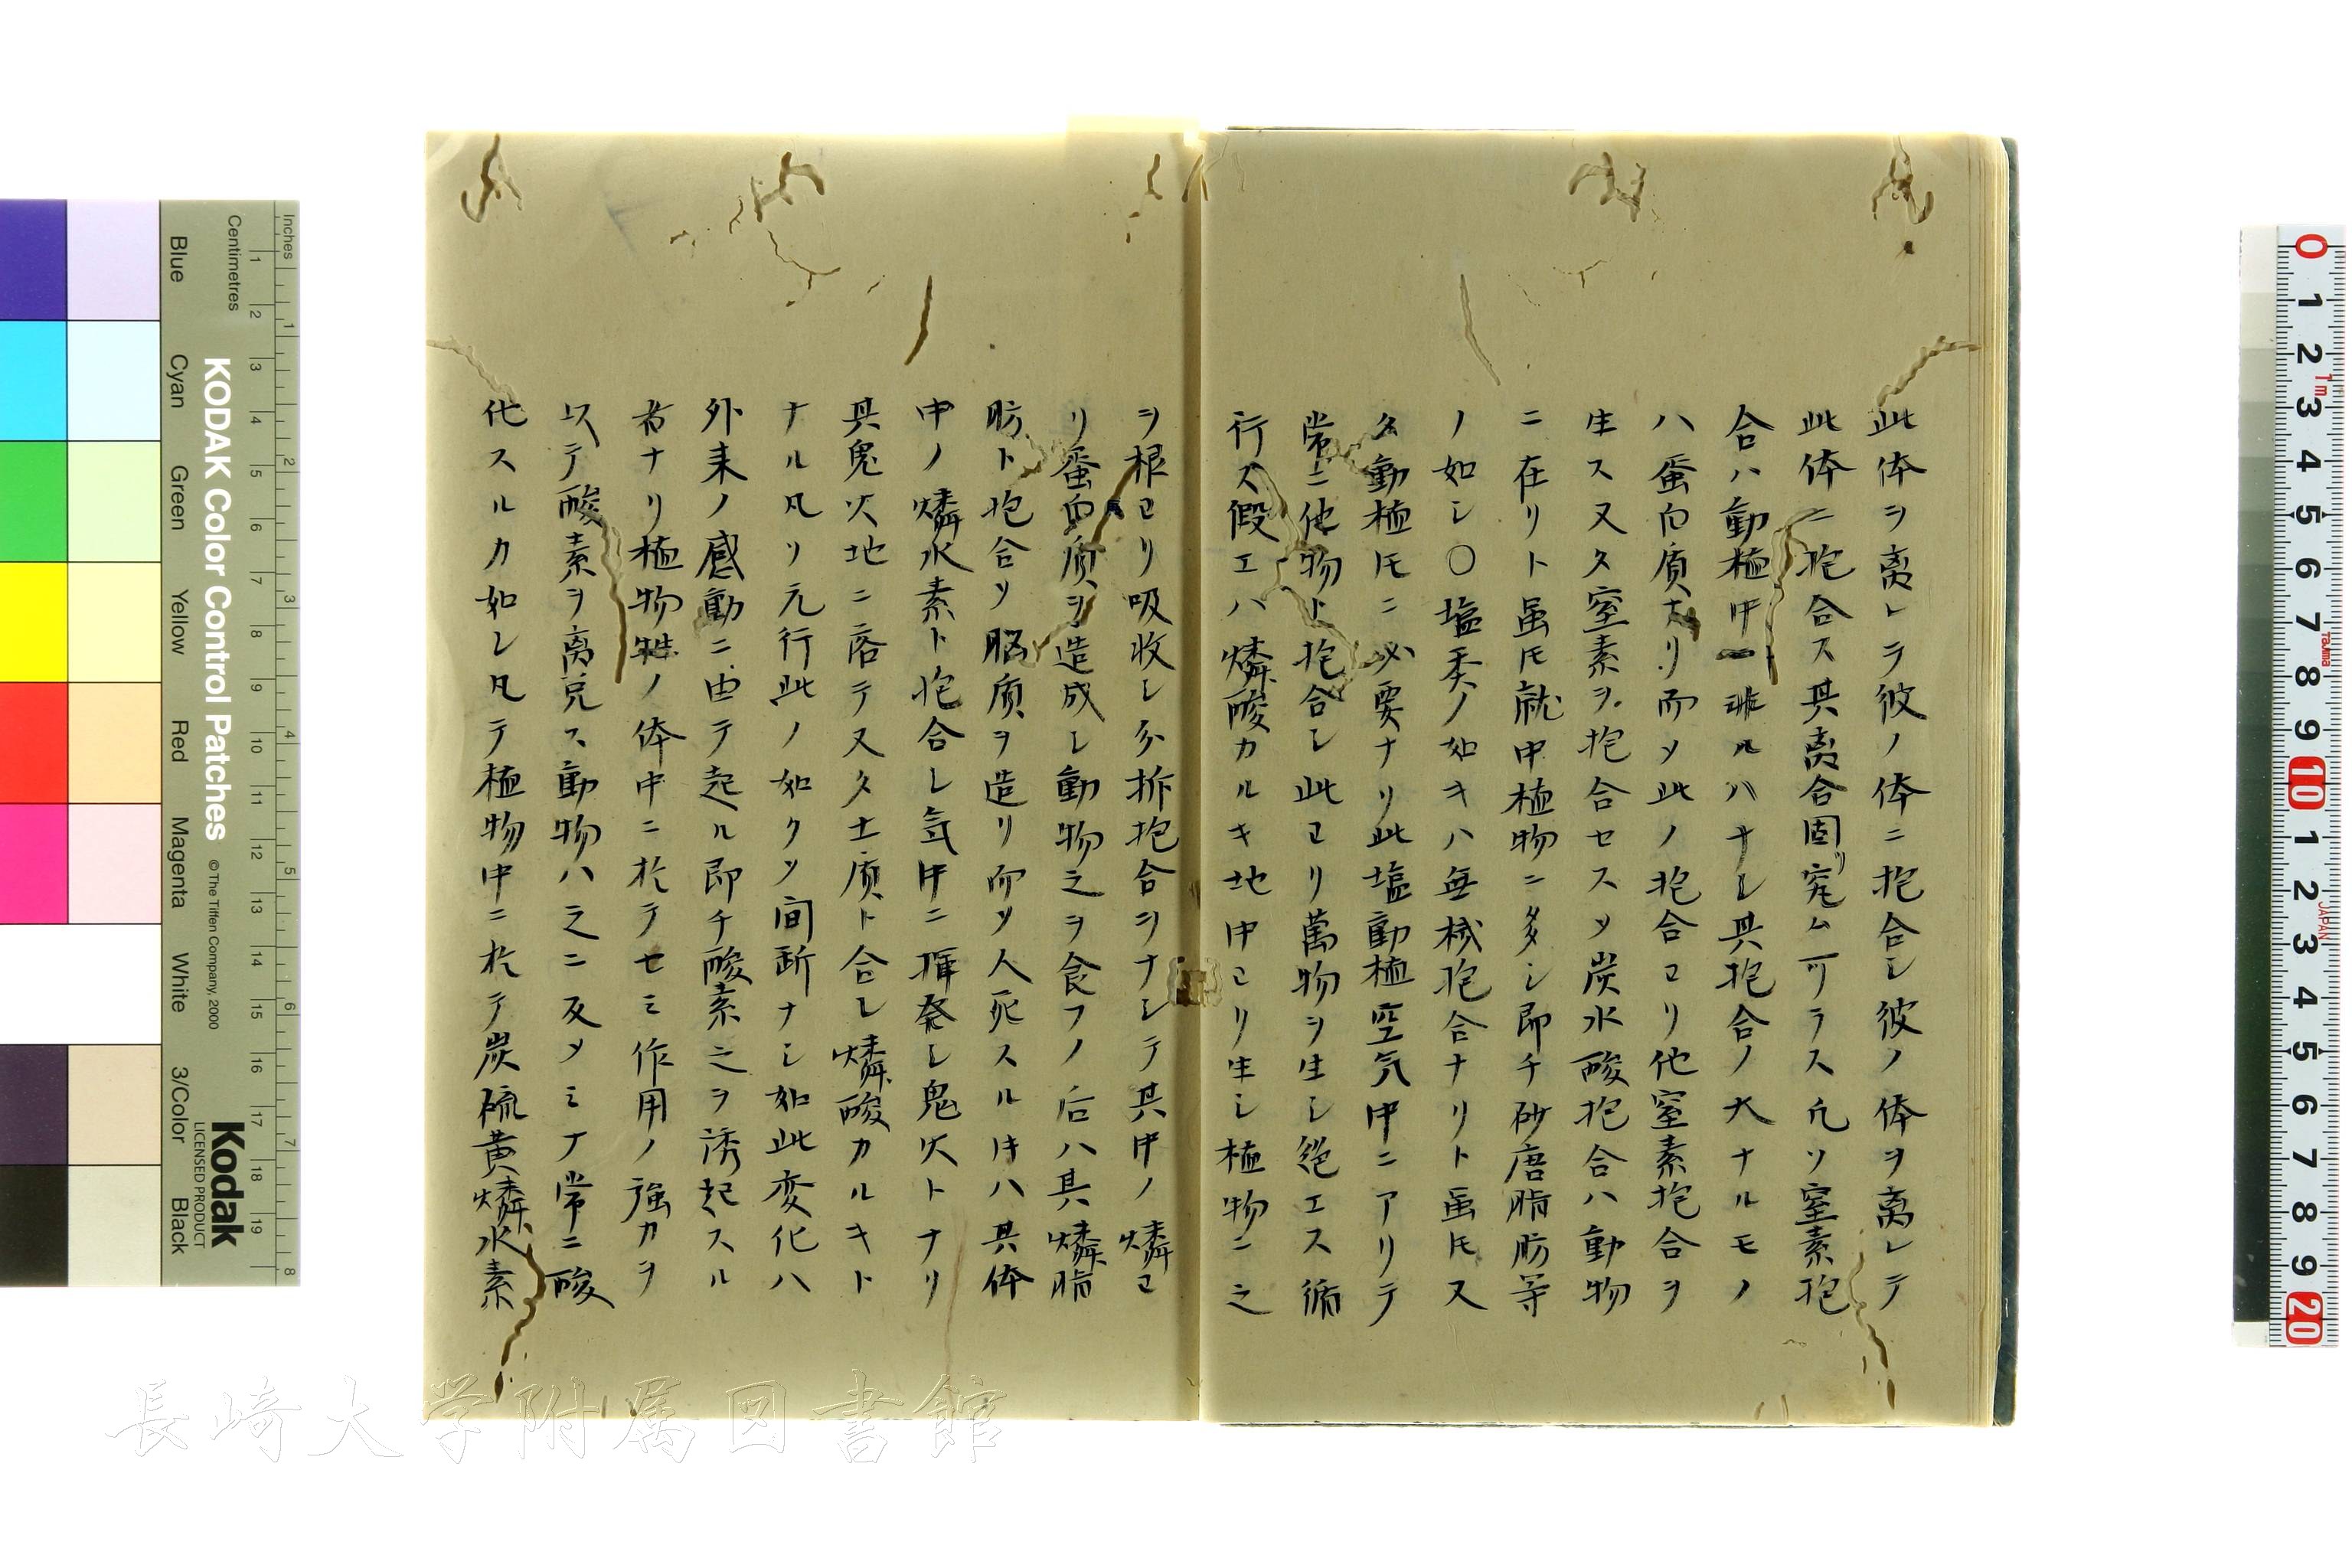 此体ヲ离レテ彼ノ体ニ抱合シ彼ノ体ヲ离レテ
此体ニ抱合ス其离合固リ究ム可ラス凡ソ窒素抱
合ハ動植中ニ非ルハナシ其抱合ノ大ナルモノ
ハ蛋白质ナリ而ソ此ノ抱合ヨリ他窒素抱合ヲ
生ス又タ窒素ヲ抱合セスソ炭水酸抱合ハ動物
ニ在リト虽𪜈就中植物ニ多シ即チ砂唐脂肪等
ノ如シ〇塩类ノ如キハ無械抱合ナリト虽𪜈又
タ動植𪜈ニ必要ナリ此塩動植空気中ニアリテ
常ニ他物ト抱合シ此ヨリ萬物ヲ生シ絕エス循
行ス假エハ燐酸カルキ地中ヨリ生シ植物ニ之
ヲ根ヨリ吸收シ分拆抱合ヲナシテ其中ノ燐ヨ
リ蛋白质ヲ造成シ動物之ヲ食フノ后ハ其燐脂
肪ト抱合ソ脳质ヲ造リ而ソ人死スル𪜈ハ其体
中ノ燐水素ト抱合シ気中ニ揮発シ鬼火トナリ
其鬼火地ニ落テ又タ土质ト合シ燐酸カルキト
ナル凡ソ元行此ノ如クソ间断ナシ如此变化ハ
外来ノ感動ニ由テ起ル即チ酸素之ヲ誘起スル
者ナリ植物牲ノ体中ニ於テセミ作用ノ強力ヲ
以テ酸素ヲ离克ス動物ハ之ニ反メミナ常ニ酸
化スルカ如シ凡テ植物中ニ於テ炭硫黄燐水素
Blue
Cyan
Green
Yellow
Red
Magenta
White
3/Color
Black
Inches
Centimetres
KODAK Color Control Patches
© The Tiffen Company, 2000
Kodak
LICENSED PRODUCT
長崎大学附属図書館